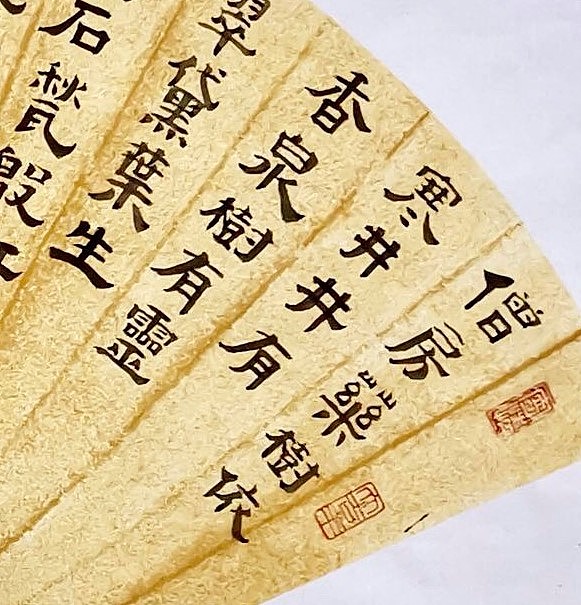 僧房藥樹依
寒井井有
香泉樹有靈
翠黛葉生
石甃殷